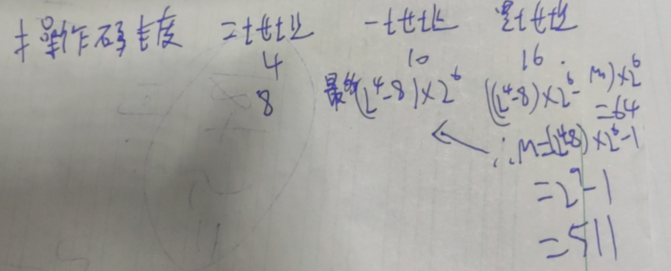 操作码长度 二地址 一地址 零地址
4 10 16
8 最多(2⁴-8)×2⁶ ((2⁴-8)×2⁶-m)×2⁶
=64
∴m=(2⁴-8)×2⁶-1
=2⁹-1
=511